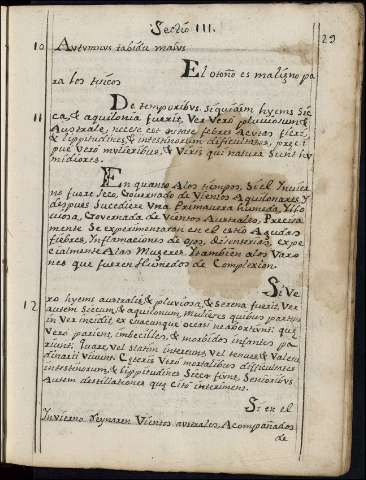 Sectio III.
29
10 Autumnus tabidis malus
El otoño es maligno pa
ra los tisicos
11 De temporibus. Siquidem hyems Sic
ca, & aquilonia fuerit, Ver Verò pluviosum &
Australe, necese est æstate febres Acutas fieri,
& lippitudines, & intestinorum dificultates, preci
puè Verò mulieribus, & Viris qui natura Sunt hu
midiores.
En quanto Alos tiempos, Si el Invier
no fuere Seco, Governado de Vientos Aquilonares, Y
despues Sucediere Una Primavera humeda, Y llo
viosa, Governada de Vientos Australes, Precisa
mente Se experimentaran en el estio Agudas
fiebres, Ynflamaciones de ojos, disenterias, expe
cialmente Alas Mugeres, Y tambien alos Varo
nes que fueren Humedos de Complexion.
12 Si Ve
ro hyems australis, & pluviosa, & serena fuerit, Ver
autem Siccum, & aquilonium, mulieres quibus partus
in Ver incidit, ex quacunque occasione abortiunt: quæ
Verò pariunt, imbecilles, & morbidos infantes pa
riunt,
vel statim intereunt, vel tenues, & Valetu
dinarii vivunt. Cæteris Verò mortalibus dificultates
intestinorum, & lippitudines Siccæ fiunt, Senioribus
Autem destillationes quæ citò interimunt.
Si en el
Invierno Reynaren Vientos australes, Acompañados
de